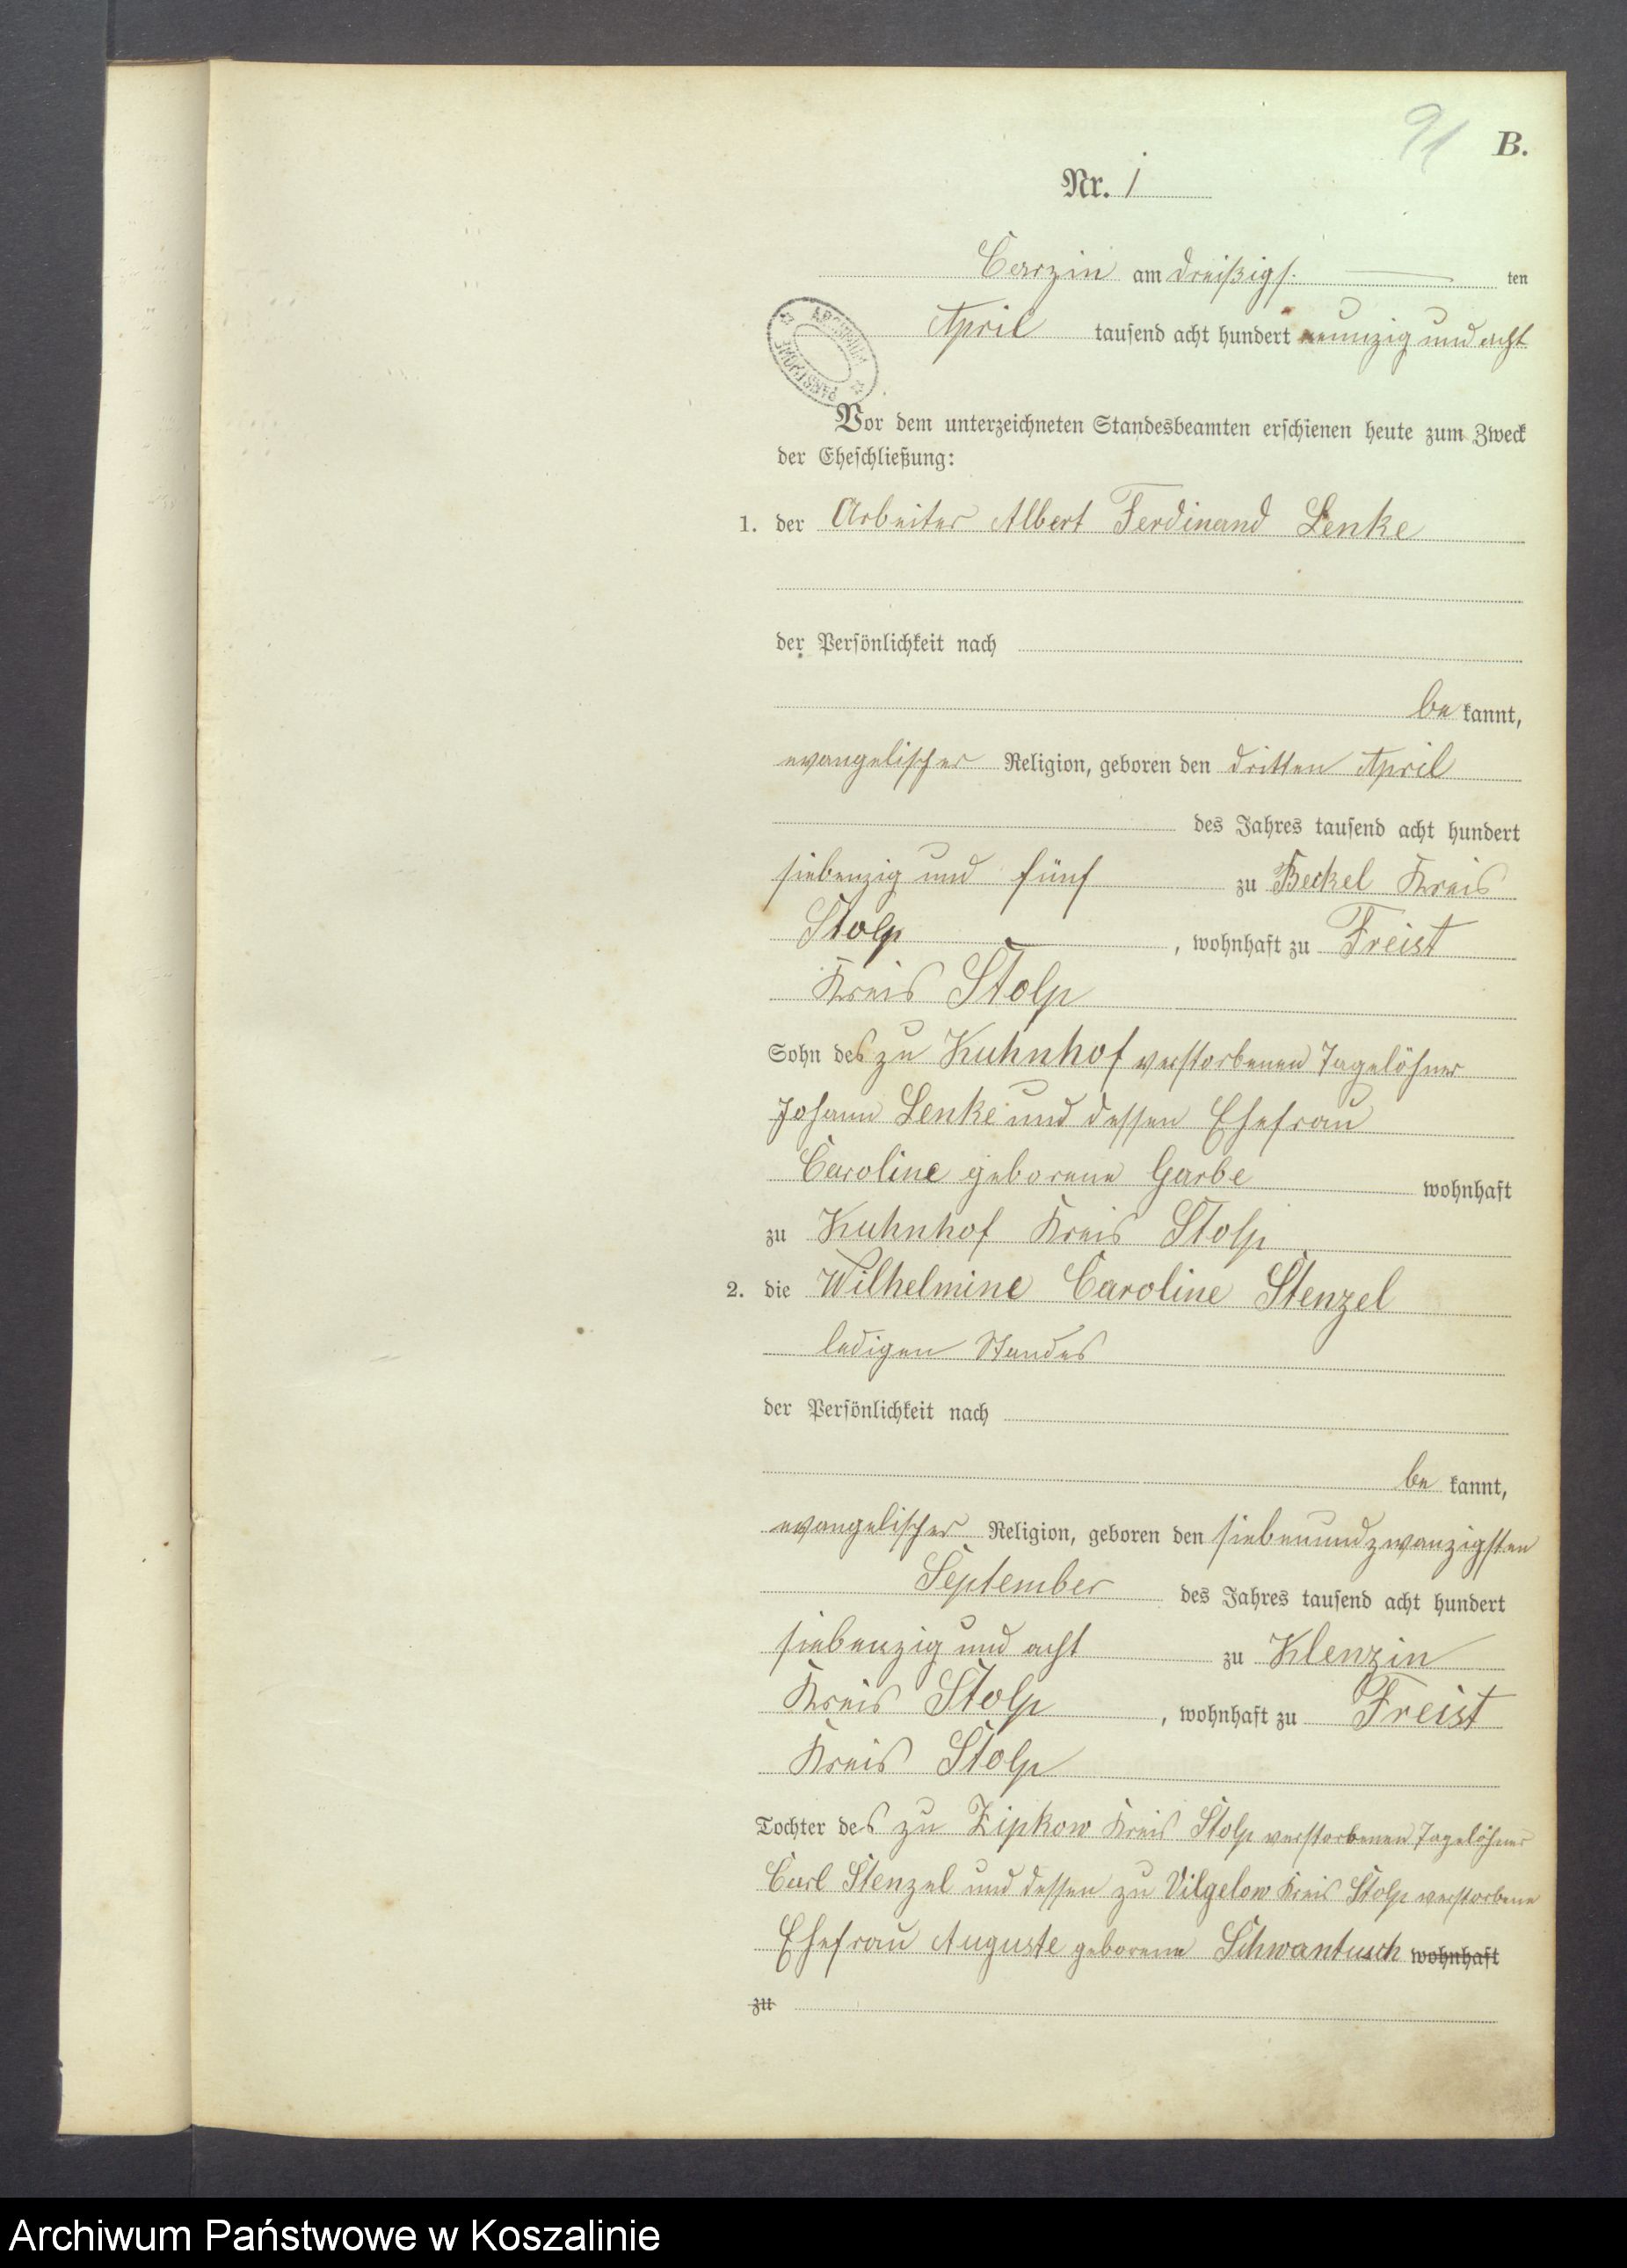 91
B.
Nr. 1
Carzin am dreißigs. ten
April tausend acht hundert neunzig und acht
ARCHIWUM PAŃSTWOWE
Vor dem unterzeichneten Standesbeamten erschienen heute zum Zweck
der Eheschließung:
1. der Arbeiter Albert Ferdinand Lenke
der Persönlichkeit nach
be kannt,
evangelischer Religion, geboren den dritten April
des Jahres tausend acht hundert
siebenzig und fünf zu Beckel Kreis
Stolp, wohnhaft zu Freist
Kreis Stolp
Sohn des zu Kuhnhof verstorbenen Tagelöhner
Johann Lenke und dessen Ehefrau
Caroline geborene Garbe wohnhaft
zu Kuhnhof Kreis Stolp
2. die Wilhelmine Caroline Stenzel
ledigen Standes
der Persönlichkeit nach
be kannt,
evangelischer Religion, geboren den siebenundzwanzigsten
September des Jahres tausend acht hundert
siebenzig und acht zu Klenzin
Kreis Stolp, wohnhaft zu Freist
Kreis Stolp
Tochter des zu Zipkow Kreis Stolp verstorbenen Tagelöhner
Carl Stenzel und dessen zu Vilgelow Kreis Stolp verstorbene
Ehefrau Auguste geborene Schwantusch wohnhaft
zu
Archiwum Państwowe w Koszalinie